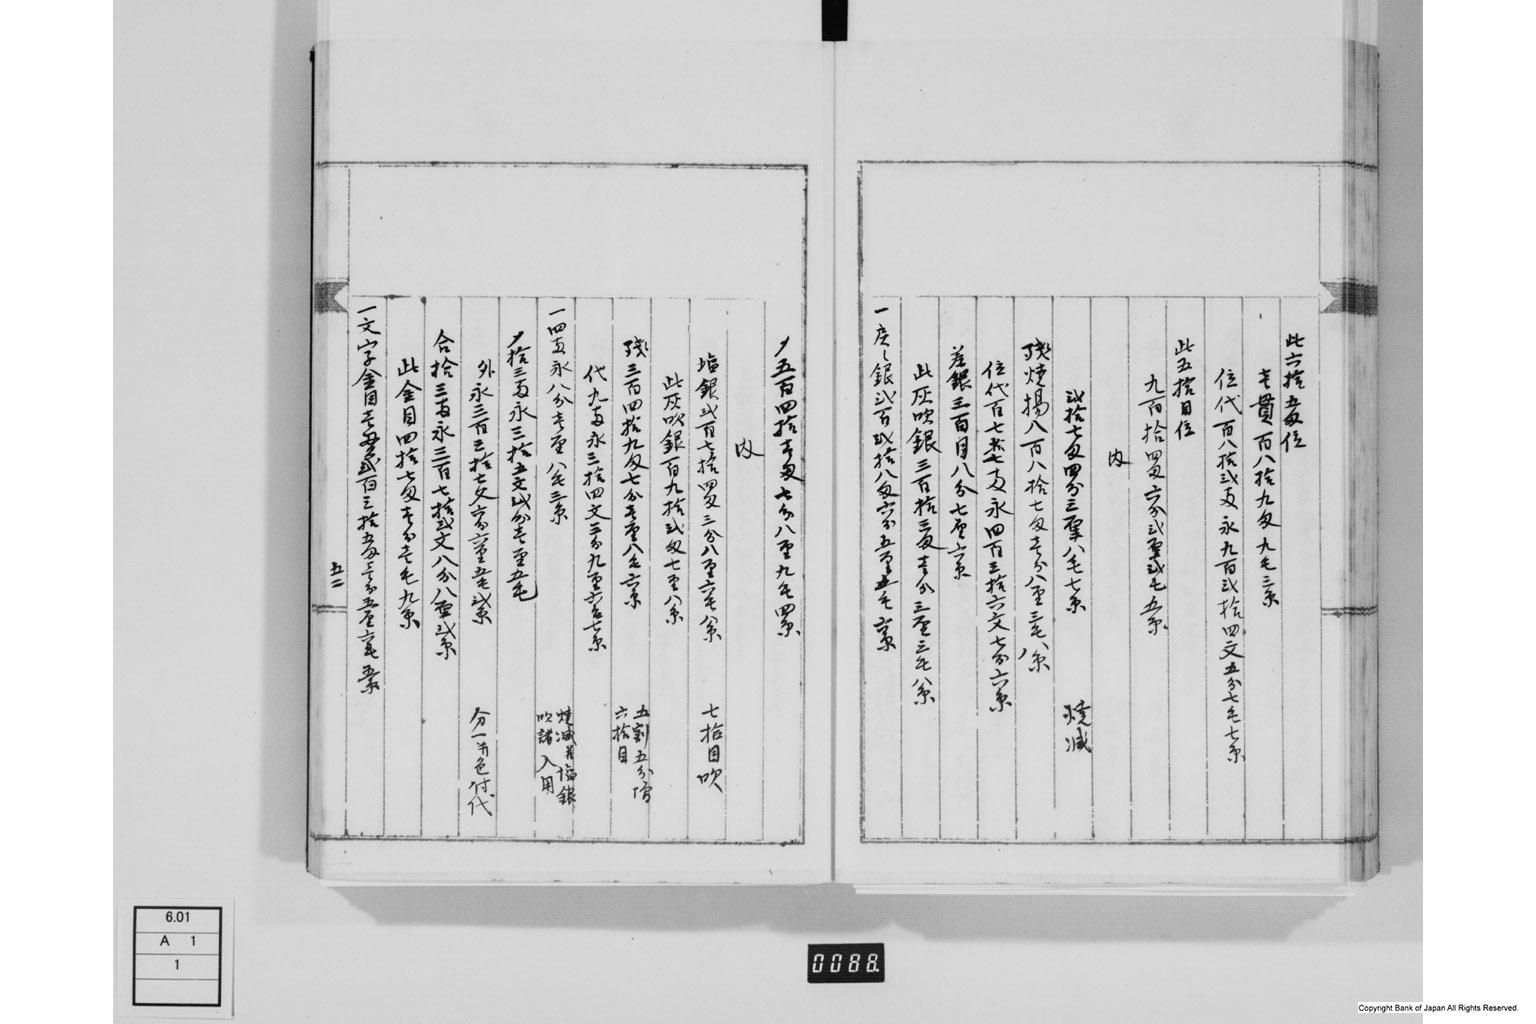 此六拾五匁位
壱貫百八拾九匁九毛三糸
位代百八拾弐両永九百弐拾四文五分七毛七糸
此五拾目位
九百拾四匁六分弐厘弐毛五糸
内
弐拾七匁四分三厘八毛七糸 焼減
残焼揚八百八拾七匁壱分八厘三毛八糸
位代百七拾七両永四百三拾六文七分六糸
差銀三百目八分七厘六糸
此灰吹銀三百拾三匁壱分三厘三毛八糸
一戻し銀弐百弐拾八匁六分五厘五毛六糸
〆五百四拾壱匁七分八厘九毛四糸
内
塩銀弐百七拾四匁三分八厘六毛八糸 七拾目吹
此灰吹銀百九拾弐匁七厘八糸
残三百四拾九匁七分壱厘八毛六糸 五割五分増 六拾目
代九両永三拾四文三分九厘六毛七糸
一四両永八分壱厘八毛三糸 焼減并塩銀 吹諸入用
〆拾三両永三拾五文弐分壱厘五毛
外永三百三拾七文六分六厘五毛弐糸 分一并色付代
合拾三両永三百七拾弐文八分八厘弐糸
此金目四拾七匁壱分壱毛九糸
一文字金目壱貫弐百三拾五匁三分五厘六毛五糸
五二
6.01
A 1
1
0088
Copyright Bank of Japan All Rights Reserved.